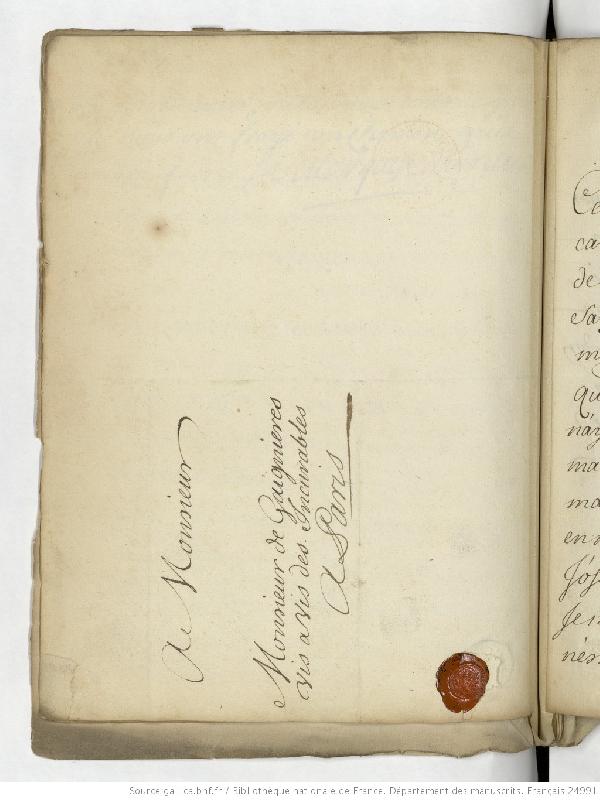 A Monsieur
Monsieur de Gaignieres
vis a vis des Incurables
A Paris
Ce
ca
de
ma
ma
en
Source gallica.bnf.fr / Bibliothèque nationale de France. Département des manuscrits. Français 24991